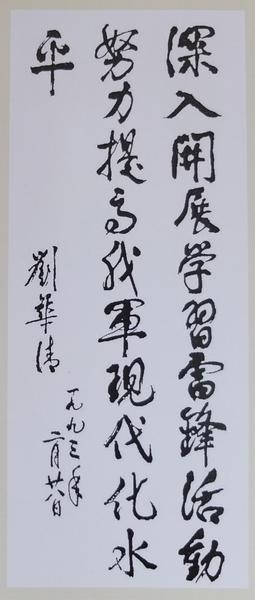 深入開展学習雷鋒活動
努力提高我軍現代化水
平
劉華清
一九九三年
二月廿八日